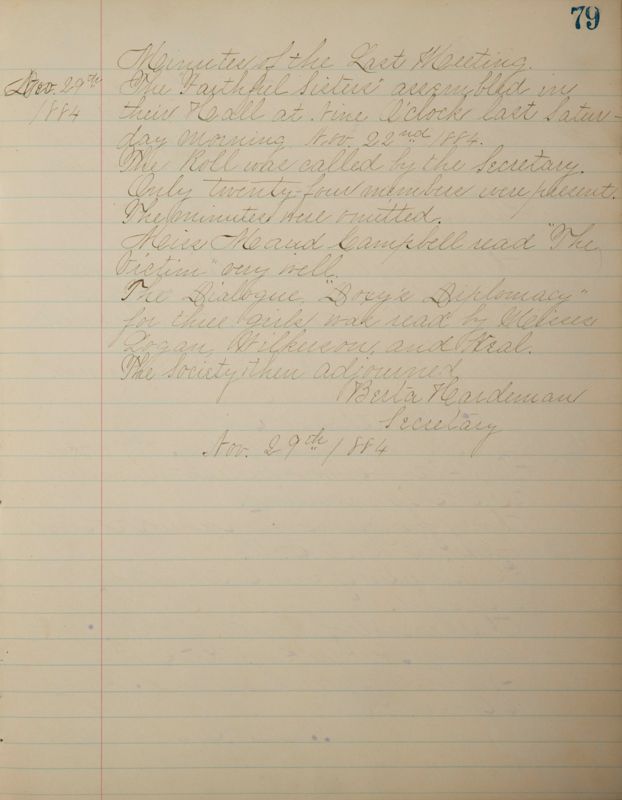 79
Minutes of the Last Meeting.
Nov. 29th The "Faithful Sisters" assembled in
1884 their Hall at Nine O'clock last Satur-
day morning Nov. 22nd 1884.
The Roll was called by the Secretary.
Only twenty-four members were present.
The minutes were omitted.
Miss Maud Campbell read "The
Victim" very well.
The Dialogue, "Doxy's Diplomacy"
for three girls was read by Misses
Logan, Wilkinson, and Neal.
The Society then adjourned
Berta Hardeman
Secretary
Nov. 29th 1884